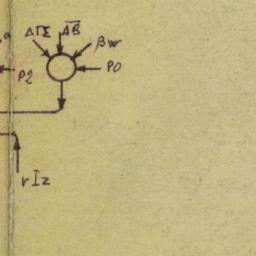 ΔΓΣ ΔB̅
βw
P2 PO
rIz